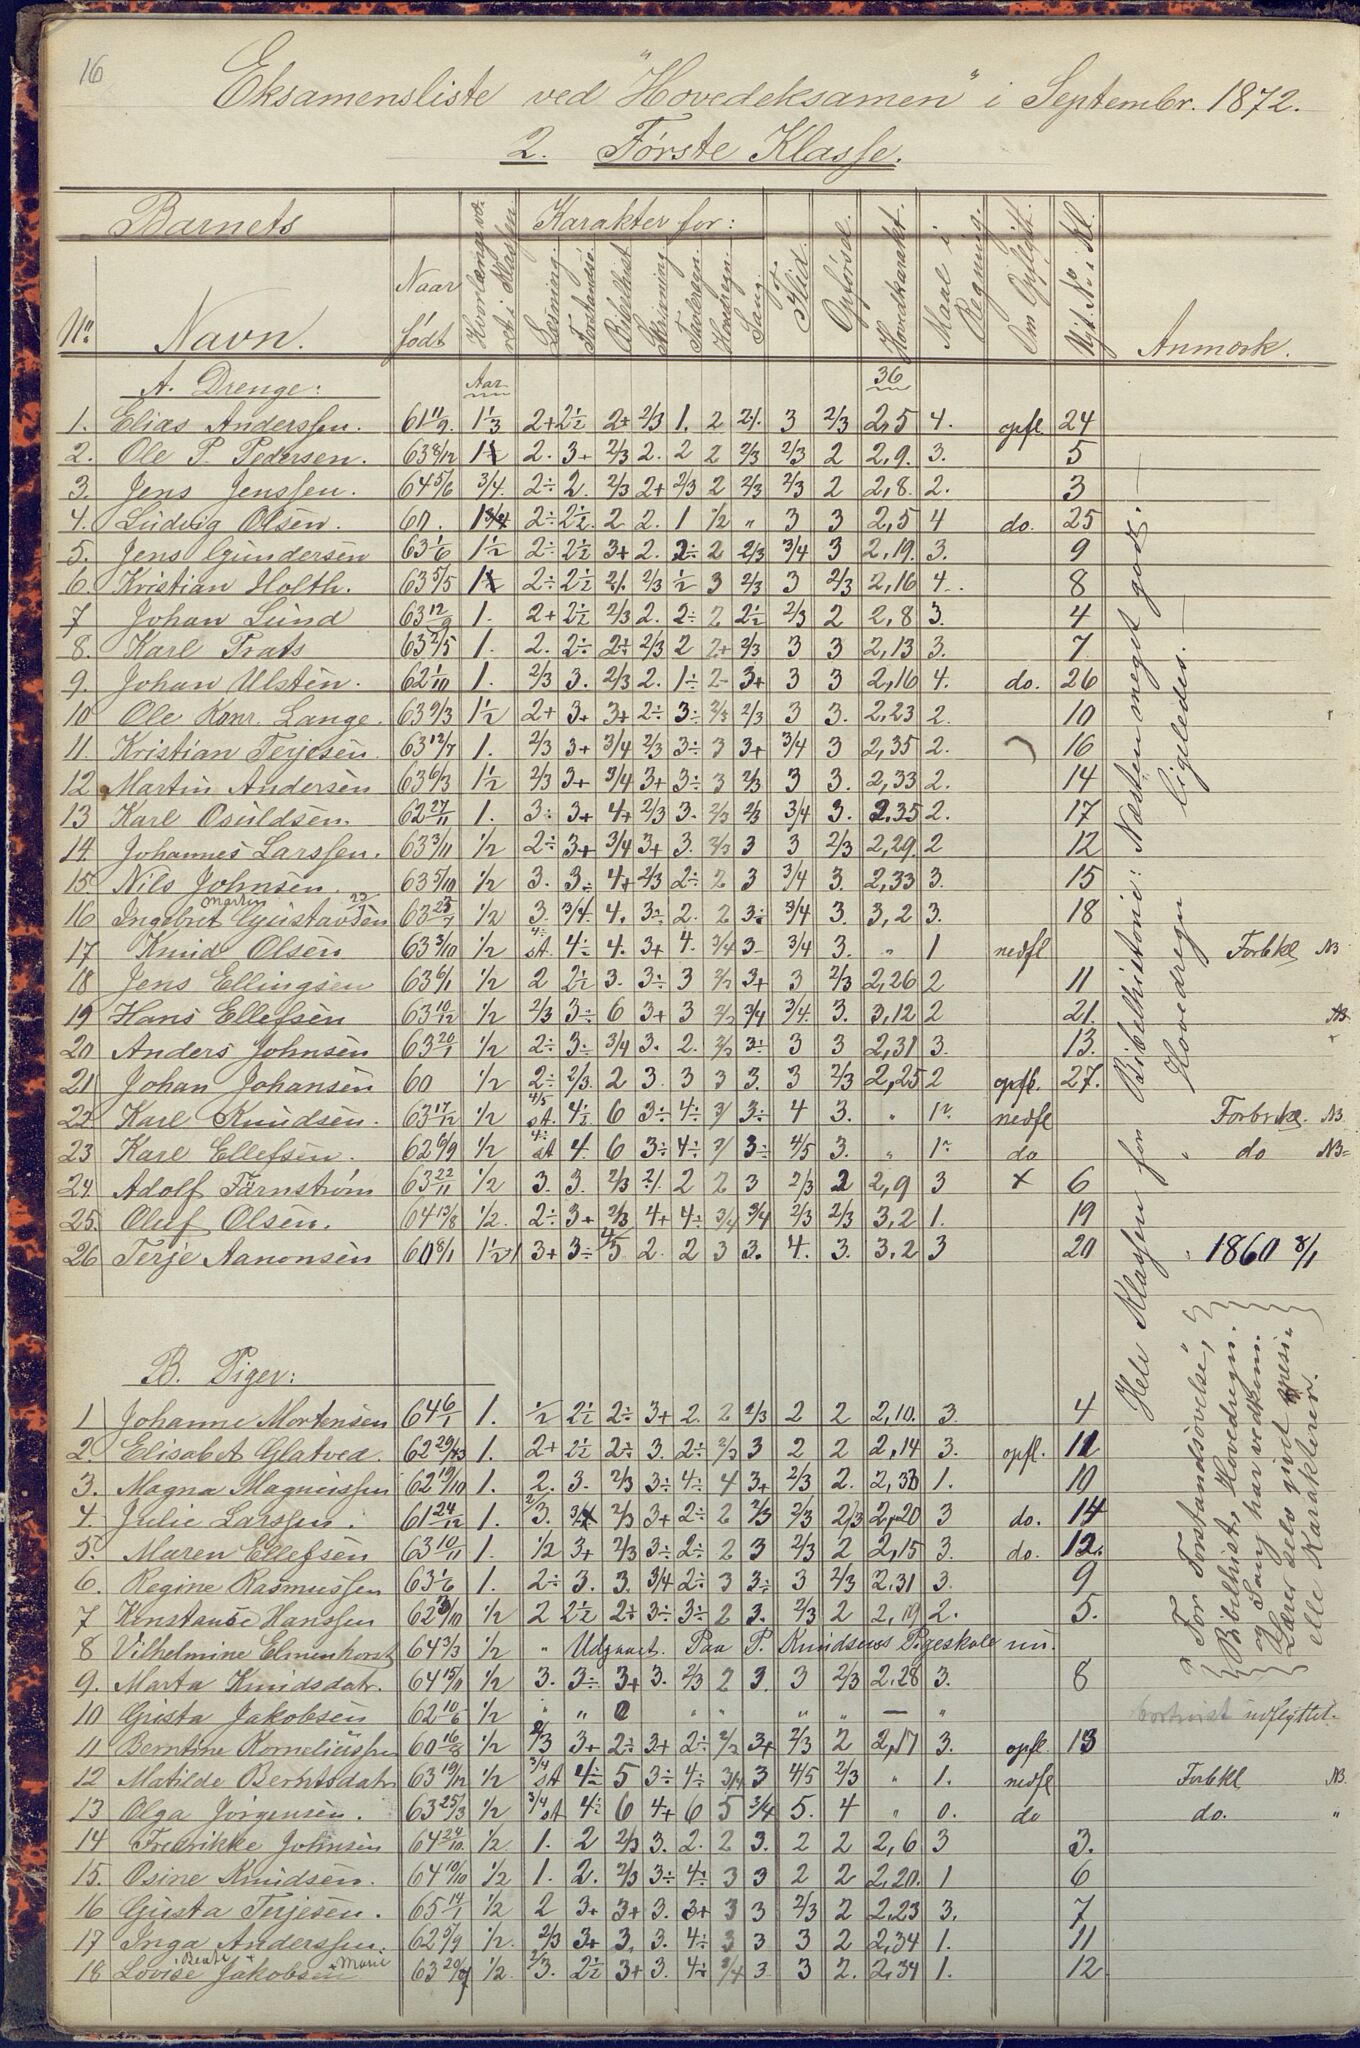 16
Eksamensliste ved "Hovedeksamen" i Septembr. 1872.
2. Første Klasse.
Barnets Karakter for:
No. Navn. Naar født Hvorlænge været i Klassen. Læsning. Forstandsø. Bibelhist. Skrivning Tavleregn. Hovedregn. Sang. Flid. Opførsel. Hovedkarakt. Maal i Regning. Om Opflytt. Nyt No i Kl. Anmærk.
A. Drenge: Aar 36
1. Elias Anderssen. 61 11/9. 1 1/3 2+ 2½ 2+ 2/3 1. 2 2/. 3 2/3 2,5 4. opfl. 24
2. Ole P. Pedersen. 63 8/12 2. 3+ 2/3 2. 2 2 2/3 2/3 2 2,9. 3. 5
3. Jens Jenssen. 64 5/6 3/4. 2÷ 2. 2/3 2+ 2/3 2 2/3 2/3 2 2,8. 2. 3
4. Ludvig Olsen. 60. 1 3/4 2÷ 2½. 2 2. 1 ½ " 3 3 2,5 4 do. 25
5. Jens Gundersen 63 1/6 1½ 2÷ 2½ 3+ 2. 2÷ 2 2/3 3/4 3 2,19. 3. 9
6. Kristian Holth. 63 5/5 2÷ 2½ 2/. 2/3 ½ 3 2/3 3 2/3 2,16 4. 8
7 Johan Lund 63 12/9 1. 2+ 2½ 2/3 2. 2÷ 2 2½ 2/3 2 2,8 3. 4
8. Karl Prats 63 2/5 1. 2. 2÷ 2÷ 2/3 2 2+ 2/3 3 3 2,13 3. 7
9. Johan Ulsten. 62 1/10 1. 2/3 3. 2/3 2. 1÷ 2 3+ 3 3 2,16 4. do. 26
10 Ole Konr. Lange. 63 9/3 1½ 2+ 3+ 3+ 2÷ 3÷ 2/3 2/3 3 3. 2,23 2. 10
11. Kristian Terjesen. 63 12/7 1. 2/3 3+ 3/4 2/3 3÷ 3 3+ 3/4 3 2,35 2. 16
12 Martin Andersen 63 6/3 1½ 2/3 3+ 3/4 3+ 3÷ 3 2/3 3 3. 2,33 2. 14
13 Karl Osuldsen. 62 27/11 1. 3÷ 3+ 4+ 2/3 3. 2/3 2/3 3/4 3. 2,35 2. 17
14. Johannes Larssen. 63 3/11 ½ 2÷ 3+ 3/4 3+ 3. 2/3 3 3 2/3 2,29. 2 12
15. Nils Johnsen. 63 5/10 ½ 3. 3÷ 4+ 2/3 2÷ 2 3 3/4 3. 2,33 3. 15
16 Ingebret Martin Gustavsen 63 23/7 ½ 3. 3/4. 4. 3÷ 2. 2 3÷ 3/4 3. 3,2 3. 18
17. Knud Olsen 63 3/10 ½ st. 4½ 4. 3+ 4. 3/4 3 3/4 3. " 1 nedfl Forbkl NB
18 Jens Ellingsen 63 6/1 ½ 2 2½ 3. 3÷ 3 2/3 3+ 3 2/3 2,26 2 11
19 Hans Ellefsen 63 10/12 ½ 2/3 3÷ 6 3+ 3 2/3 3/4 3/4. 3. 3,12 2 21. NB
20 Anders Johnsen 63 20/1 ½ 2÷ 3÷ 3/4 3. 2. 2/3 3÷ 3 3 2,31 3. 13.
21 Johan Johansen 60 ½ 2÷ 2/3. 2 3. 3 3 3. 3 2/3 2,25 2 opfl. 27.
22. Karl Knudsen. 63 17/12 ½ 4/5 st. 4½ 6 3÷ 4÷ 3/ 3÷ 4 3. " 1. nedfl Forbrkl. NB
23 Karl Ellefsen. 62 6/9 ½ st 4. 6 3÷ 4÷ 3/ 3÷ 4/5 3. " 1. do " do NB
24. Adolf Färnström 63 22/11 ½ 3. 3. 2/3 2/. 2 2 3 2/3 2 2,9 3 x 6
25. Oluf Olsen. 64 13/8 ½. 2÷ 3+ 2/3 4+ 4÷ 3/4 3/4 2/3 2/3 3,2 1. 19
26 Terje Aanonsen 60 8/1 1½ 3+ 3÷ 4/5 2. 2 3 3. 4. 3. 3,2 3 20 " 1860 8/1
Hele Klassen for Bibelhistorie: Næsten meget godt.
" " " Hovedregn ligeledes.
B. Piger:
1 Johanne Mortensen 64 6/1 1. ½ 2½ 2÷ 3+ 2. 2 2/3 2 2 2,10. 3. 4
2. Elisabet Glatved. 62 29/3 1. 2+ 2½ 2÷ 3. 2÷ 2/3 3 2 2 2,14 3. opfl. 11
3. Magna Magnussen 62 19/10 1. 2. 3. 2/3 3÷ 4÷ 4 3+ 2/3 2. 2,33 1. 10
4. Julie Larssen. 61 24/12 1. 3. 3/4 2/3 3+ 2÷ 2 2/3 2/3 2/3 2,20 3 do. 14
5. Maren Ellefsen 63 10/11 1. ½ 3+ 2/3 3÷ 2÷ 2 3 2/3 2 2,15 3. do. 12.
6. Regine Rasmussen 63 1/6 1. 2÷ 3. 3. 3/4 2÷ 3 3÷ 3 2/3 2,31 3. 9
7 Konstanse Hanssen 62 3/10 ½ 2 2½ 2÷ 3÷ 3÷ 2 3. 2/3 2 2,19 2. 5.
8 Vilhelmine Elmenhorst 64 3/3 ½ " Udgaaet. Paa P. Knudsens Pigeskole nu.
9. Marta Knudsdatr. 64 15/1 ½ 3. 3÷ 3+ 3. 2/3 2 3. 3 2/3 2,28 3. 8
10 Gusta Jakobsen 62 10/6 ½ " " 0 " " " " — " udflyttet.
11 Berntine Korneliussen 60 16/8 ½ 2/3 3+ 2÷ 3+ 2÷ 2/3 3+ 2/3 2 2,17 3. opfl. 13
12 Matilde Berntsdatr 63 19/12 ½ 3/4 st 4½ 5 3÷ 4÷ 3/4 3 4/5 2/3 " 1. nedfl Forbkl NB.
13 Olga Jörgensen. 63 25/3 ½ 3/4 st 4½ 6 4+ 6 5 3/4 5. 4 " 0. do do. "
14 Fredrikke Johnsen 64 24/10. ½ 1. 2 2/3 3. 2. 2 3. 2 2 2,6 3 3.
15. Osine Knudsen. 64 10/10 ½ 1. 2. 2/3 3÷ 4÷ 3 3 2 2 2,20. 1 6
16 Gusta Terjesen. 65 14/1 ½ 2 3+ 3+ 3. 3+ 3 3 2/3 2 2,23 3. 7
17 Inga Anderssen. 62 5/9 ½. 2/3 3+ 3. 3. 4÷ 3 3 3 2 2,34 1. 11
18 Lovise Beate Jakobsen Marie 63 20/7 ½. 2/3. 2½ 3+ 3. 4÷ 3/4 3. 3 2. 2,34 1. 12
"For Forstandsøvelse",
Bibelhist., Hovedregn.
og Sang har vedkomm.
Lærer selv givet spesi-
elle Karakterer.